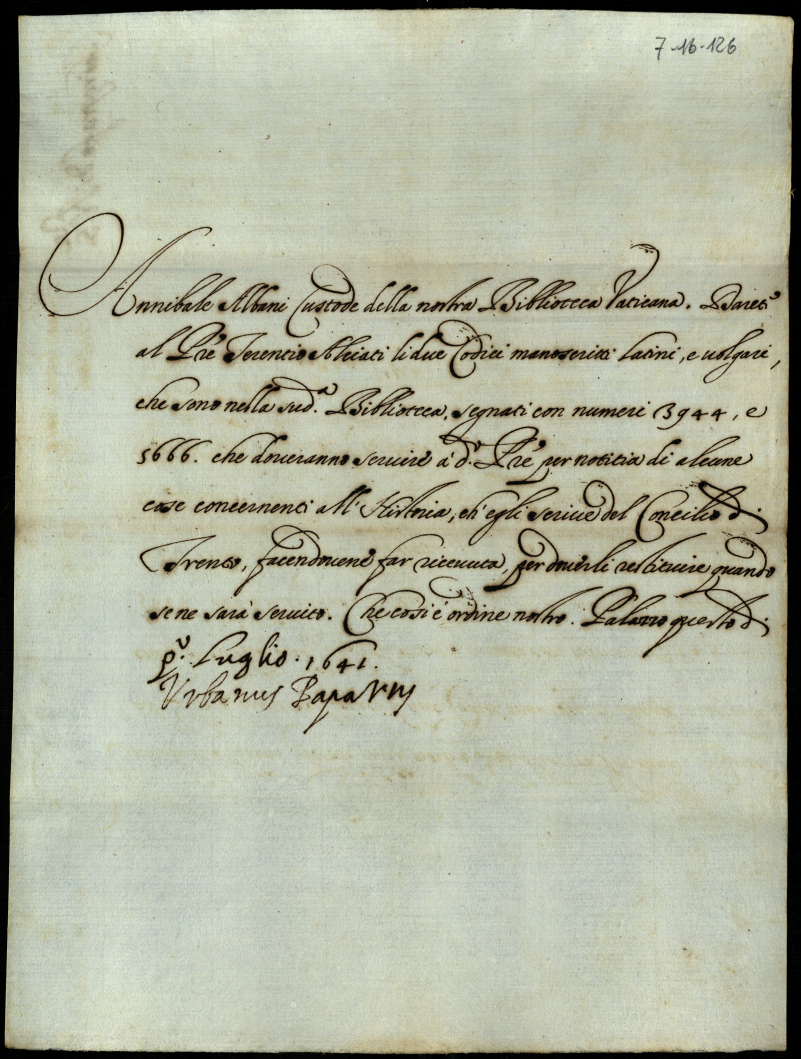 7-16-126
Annibale Albani Custode della nostra Biblioteca Vaticana. Darete
al Pre Terentio Alciati li due Codici manoscritti Latini, e uolgari,
che sono nella sud.a Biblioteca, segnati con numeri 3944, e
1666. che doueranno seruire à d.o Pre per notitia di alcune
cose concernenti all' Historia, ch' egli scriue del Concilio di
Trento, facendouene far riceuuta, per douerli restituire quando
se ne sarà seruito. Che così è ordine nostro. Palazzo questo dì
p.o Luglio. 1641.
Urbanus Papa VIII